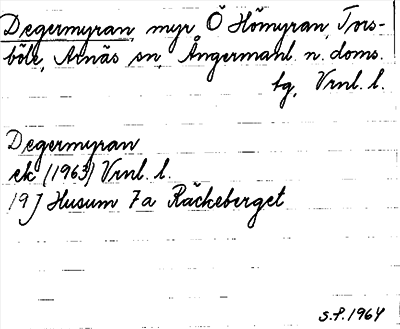 Degermyran, myr Ö Hömyran, Tors-
böle, Arnäs sn, Ångermanl. n. doms.
tg, Vrnl. l.
Degermyran
ek (1963) Vrnl. l.
19J Husum 7a Räckeberget
S.F. 1964